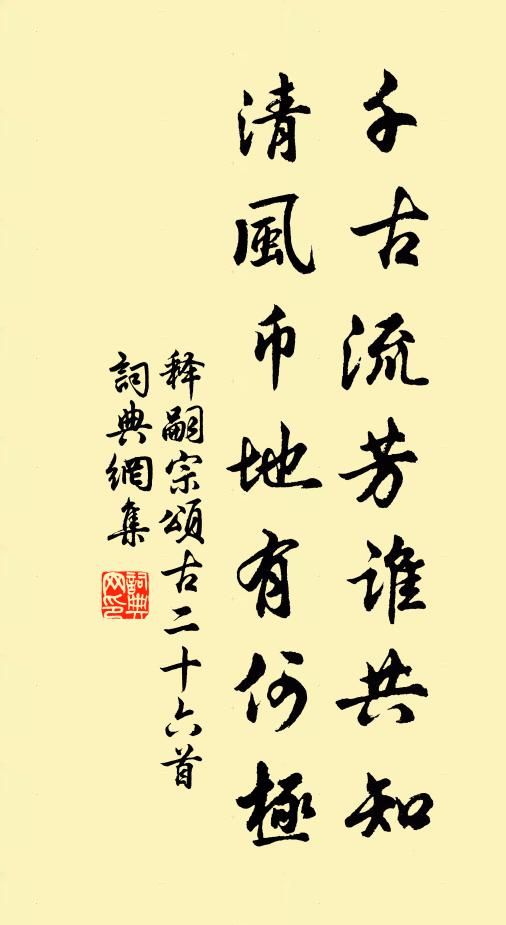 千古流芳谁共知
清風帀地有何極
释嗣宗頌古二十六首
詞典網集
詞典網印